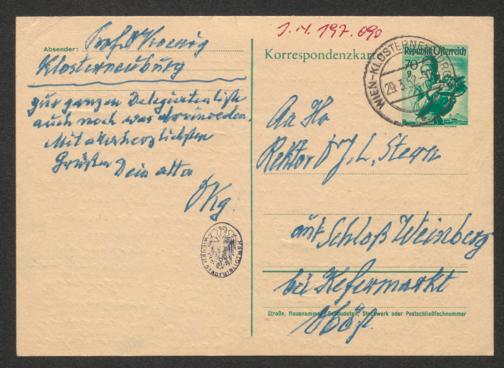 J.N. 197.090
Absender: Prof. Koenig
Klosterneuburg
zur ganzen Delegiertenliste
auch noch was
Mit allerherzlichsten
Grüßen Dein alter
OKg.
Korrespondenzkarte
Republik Österreich
WIEN-KLOSTERNEUBURG
An Ho
Rektor D J. L. Stern
auf Schloß Weinberg
bei Kefermarkt
Straße, Hausnummer, Gebäudeteil, Stockwerk oder Postschließfachnummer